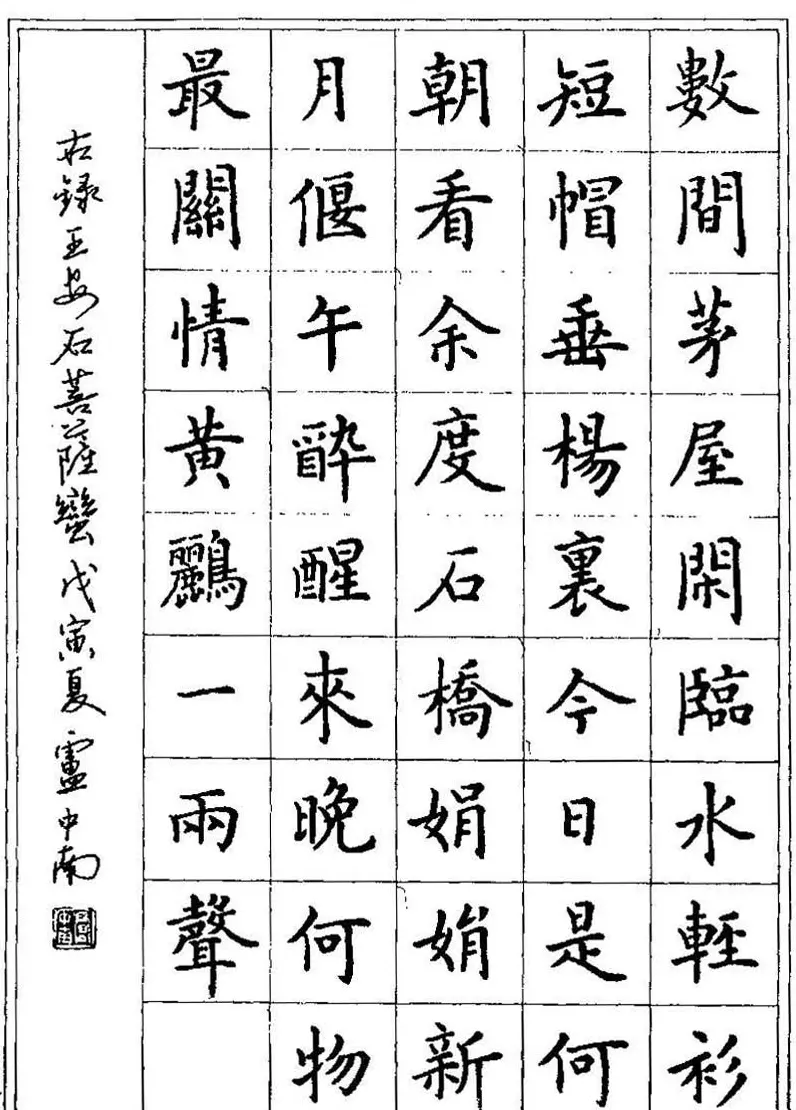 數間茅屋閑臨水輕衫
短帽垂楊裏今日是何
朝看余度石橋娟娟新
月偃午酔醒來晚何物
最關情黃鸝一兩聲
右錄王安石菩薩蠻戊寅夏盧中南